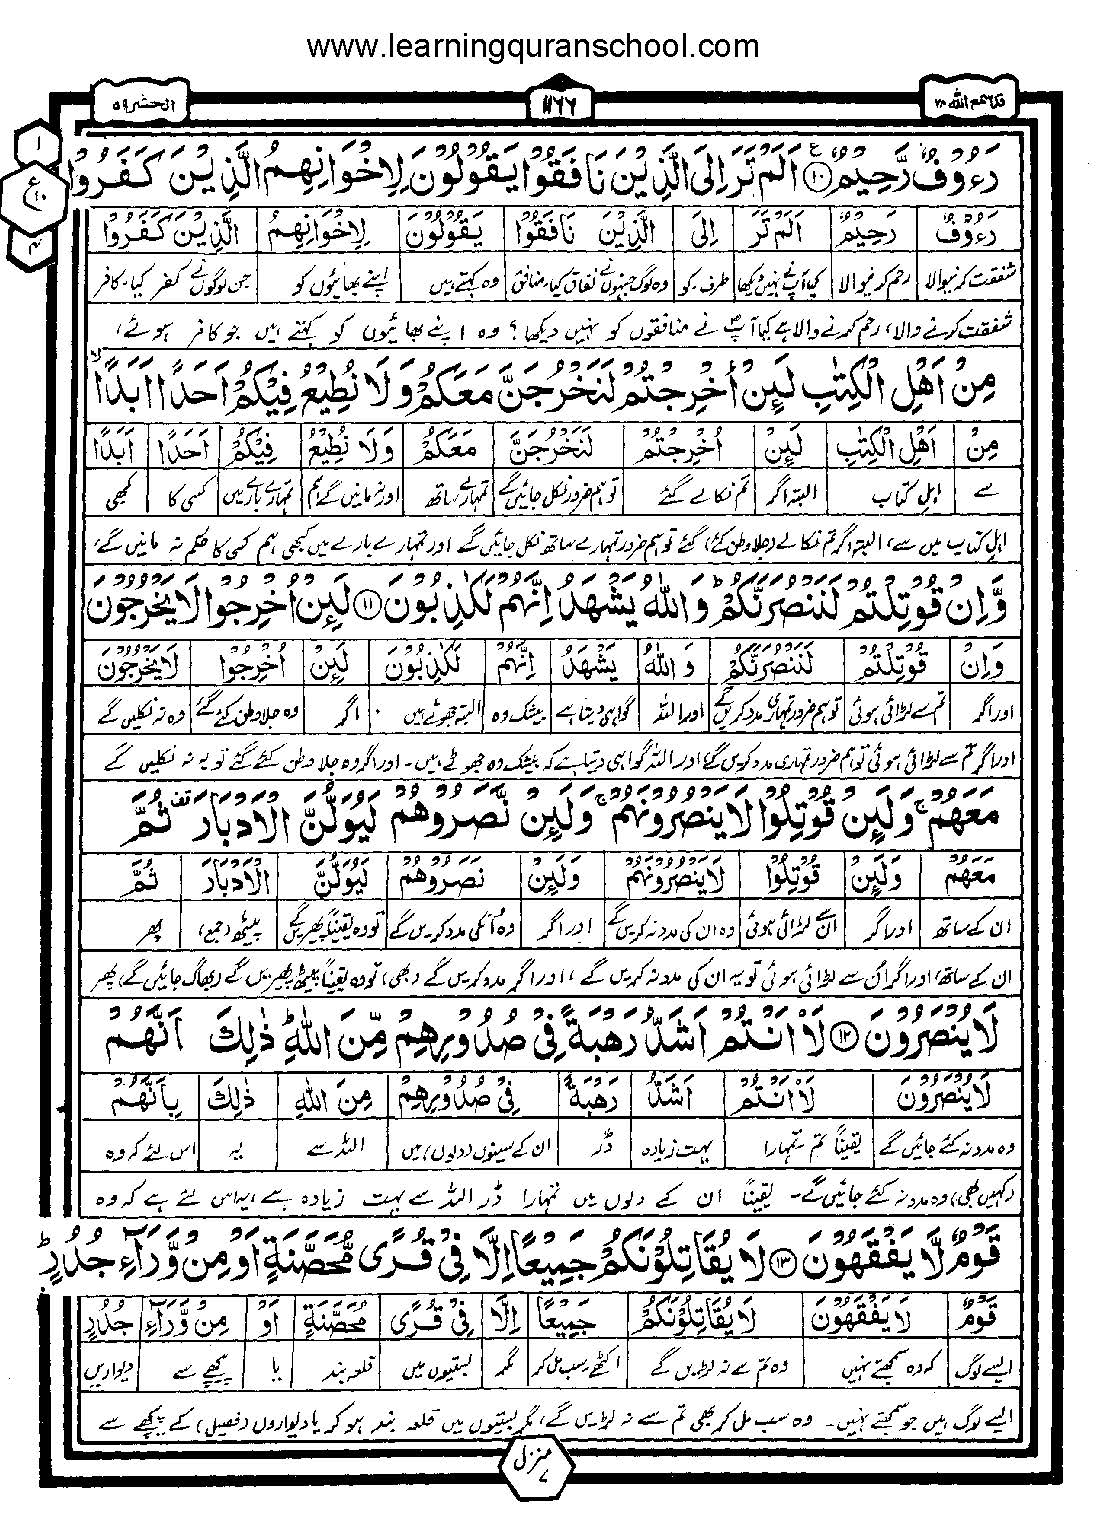 www.learningquranschool.com
قد سمع الله ۲۸
۱۱۶۶
الحشر ۵۹
۱
ع
۱۰
۴
رَءُوْفٌ رَّحِيْمٌ ۱۰ اَلَمْ تَرَ اِلَى الَّذِيْنَ نَافَقُوْا يَقُوْلُوْنَ لِاِخْوَانِهِمُ الَّذِيْنَ كَفَرُوْا
رَءُوْفٌ رَحِيْمٌ اَلَمْ تَرَ اِلَى الَّذِيْنَ نَافَقُوْا يَقُوْلُوْنَ لِاِخْوَانِهِمُ الَّذِيْنَ كَفَرُوْا
شفقت کرنیوالا رحم کرنیوالا کیا آپ نے نہیں دیکھا طرف۔کو وہ لوگ جنہوں نے نفاق کیا، منافق وہ کہتے ہیں اپنے بھائیوں کو جن لوگوں نے کفر کیا، کافر
شفقت کرنے والا، رحم کرنے والا ہے کیا آپؐ نے منافقوں کو نہیں دیکھا؟ وہ اپنے بھائیوں کو کہتے ہیں جو کافر ہوئے،
مِنْ اَهْلِ الْكِتٰبِ لَئِنْ اُخْرِجْتُمْ لَنَخْرُجَنَّ مَعَكُمْ وَلَا نُطِيْعُ فِيْكُمْ اَحَدًا اَبَدًا
مِنْ اَهْلِ الْكِتٰبِ لَئِنْ اُخْرِجْتُمْ لَنَخْرُجَنَّ مَعَكُمْ وَلَا نُطِيْعُ فِيْكُمْ اَحَدًا اَبَدًا
سے اہل کتاب البتہ اگر تم نکالے گئے تو ہم ضرور نکل جائیں گے تمہارے ساتھ اور نہ مانیں گے ہم تمہارے بارے میں کسی کا کبھی
اہل کتاب میں سے، البتہ اگر تم نکالے (جلا وطن کئے) گئے تو ہم ضرور تمہارے ساتھ نکل جائیں گے اور تمہارے بارے میں کبھی ہم کسی کا حکم نہ مانیں گے،
وَّاِنْ قُوْتِلْتُمْ لَنَنْصُرَنَّكُمْ ؕ وَاللّٰهُ يَشْهَدُ اِنَّهُمْ لَكٰذِبُوْنَ ۱۱ لَئِنْ اُخْرِجُوْا لَا يَخْرُجُوْنَ
وَاِنْ قُوْتِلْتُمْ لَنَنْصُرَنَّكُمْ وَاللّٰهُ يَشْهَدُ اِنَّهُمْ لَكٰذِبُوْنَ لَئِنْ اُخْرِجُوْا لَا يَخْرُجُوْنَ
اور اگر تم سے لڑائی ہوئی تو ہم ضرور تمہاری مدد کریں گے اور اللہ گواہی دیتا ہے بیشک وہ البتہ جھوٹے ہیں اگر وہ جلا وطن کئے گئے وہ نہ نکلیں گے
اور اگر تم سے لڑائی ہوئی تو ہم ضرور تمہاری مدد کریں گے اور اللہ گواہی دیتا ہے کہ بیشک وہ جھوٹے ہیں۔ اور اگر وہ جلا وطن کئے گئے تو یہ نہ نکلیں گے
مَعَهُمْ ۚ وَلَئِنْ قُوْتِلُوْا لَا يَنْصُرُوْنَهُمْ ۚ وَلَئِنْ نَّصَرُوْهُمْ لَيُوَلُّنَّ الْاَدْبَارَ قف ثُمَّ
مَعَهُمْ وَلَئِنْ قُوْتِلُوْا لَا يَنْصُرُوْنَهُمْ وَلَئِنْ نَصَرُوْهُمْ لَيُوَلُّنَّ الْاَدْبَارَ ثُمَّ
ان کے ساتھ اور اگر ان سے لڑائی ہوئی وہ ان کی مدد نہ کریں گے اور اگر وہ انکی مدد کریں گے تو وہ یقیناً پھیریں گے پیٹھ (جمع) پھر
ان کے ساتھ، اور اگر ان سے لڑائی ہوئی تو یہ ان کی مدد نہ کریں گے، اور اگر مدد کریں گے (بھی) تو وہ یقیناً پیٹھ پھیریں گے (بھاگ جائیں گے)، پھر
لَا يُنْصَرُوْنَ ۱۲ لَاَانْتُمْ اَشَدُّ رَهْبَةً فِيْ صُدُوْرِهِمْ مِّنَ اللّٰهِ ؕ ذٰلِكَ بِاَنَّهُمْ
لَا يُنْصَرُوْنَ لَاَانْتُمْ اَشَدُّ رَهْبَةً فِيْ صُدُوْرِهِمْ مِنَ اللّٰهِ ذٰلِكَ بِاَنَّهُمْ
وہ مدد نہ کئے جائیں گے یقیناً تم تمہارا بہت زیادہ ڈر ان کے سینوں (دلوں) میں اللہ سے یہ اس لئے کہ وہ
(کہیں بھی) وہ مدد نہ کئے جائیں گے۔ یقیناً ان کے دلوں میں تمہارا ڈر اللہ سے بہت زیادہ ہے، یہ اس لئے ہے کہ وہ
قَوْمٌ لَّا يَفْقَهُوْنَ ۱۳ لَا يُقَاتِلُوْنَكُمْ جَمِيْعًا اِلَّا فِيْ قُرًى مُّحَصَّنَةٍ اَوْ مِنْ وَّرَآءِ جُدُرٍ ؕ
قَوْمٌ لَا يَفْقَهُوْنَ لَا يُقَاتِلُوْنَكُمْ جَمِيْعًا اِلَّا فِيْ قُرًى مُحَصَّنَةٍ اَوْ مِنْ وَّرَآءِ جُدُرٍ
ایسے لوگ کہ وہ سمجھتے نہیں وہ تم سے نہ لڑیں گے اکٹھے سب مل کر مگر بستیوں میں قلعہ بند یا پیچھے سے دیواریں
ایسے لوگ ہیں جو سمجھتے نہیں۔ وہ سب مل کر بھی تم سے نہ لڑیں گے، مگر بستیوں میں قلعہ بند ہو کر یا دیواروں (فصیل) کے پیچھے سے
منزل ۷